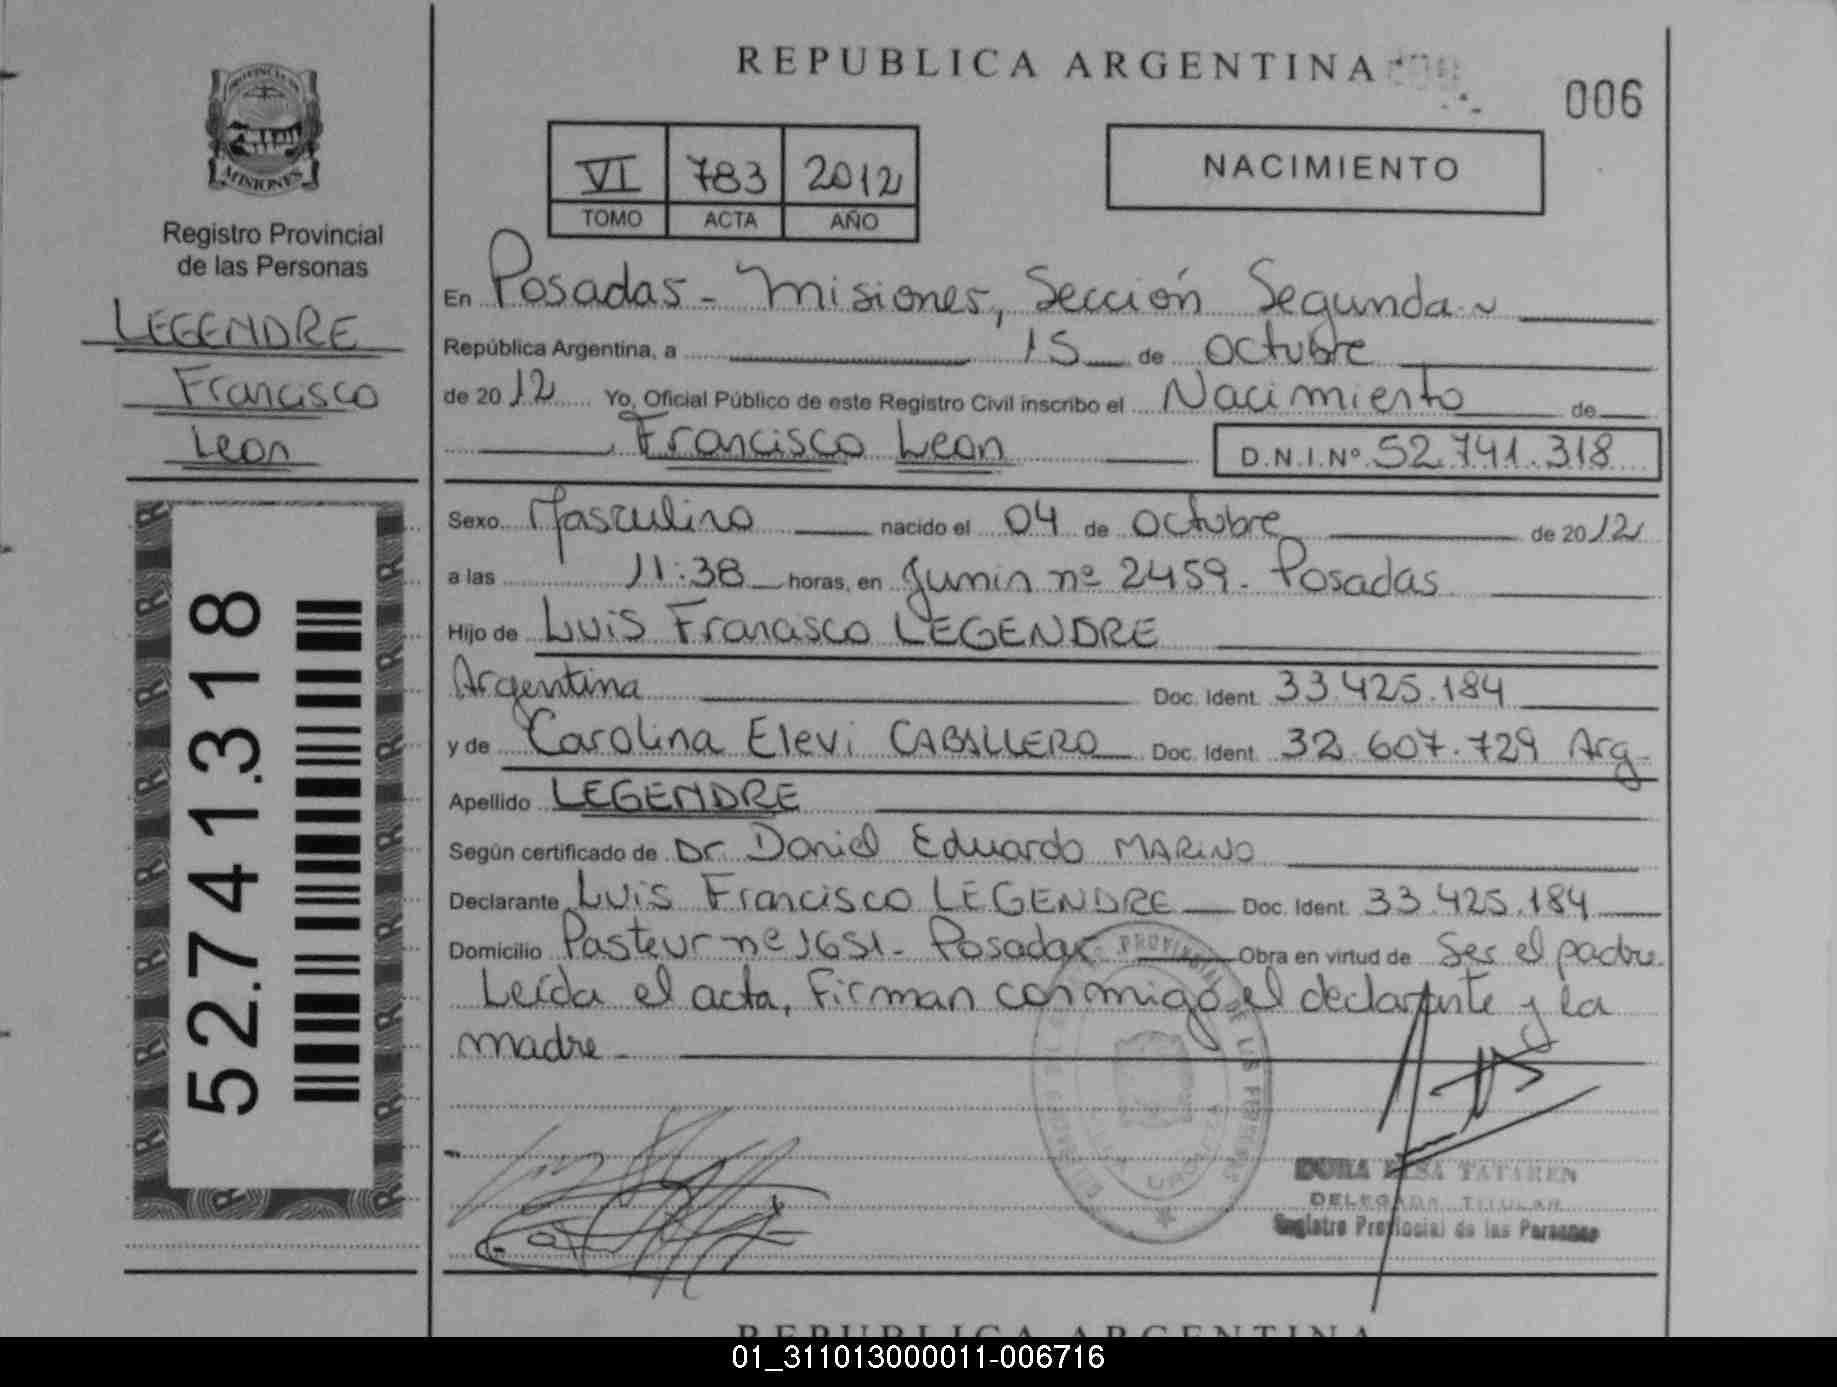 REPUBLICA ARGENTINA
006
VI 783 2012
TOMO ACTA AÑO
NACIMIENTO
PROVINCIA DE
MISIONES
Registro Provincial
de las Personas
LEGENDRE
Francisco
Leon
52.741.318
En Posadas - Misiones, Sección Segunda
República Argentina, a 15 de octubre
de 2012 Yo, Oficial Público de este Registro Civil inscribo el Nacimiento de
Francisco Leon D.N.I.Nº 52.741.318
Sexo Masculino nacido el 04 de octubre de 2012
a las 11:38 horas, en Junin nº 2459 - Posadas
Hijo de Luis Francisco LEGENDRE
Argentina Doc. Ident. 33.425.184
y de Carolina Elevi CABALLERO Doc. Ident. 32.607.729 Arg-
Apellido LEGENDRE
Según certificado de Dr. Daniel Eduardo MARINO
Declarante Luis Francisco LEGENDRE Doc. Ident. 33.425.184
Domicilio Pasteur nº 1651 - Posadas Obra en virtud de Ser el padre
Leída el acta, Firman conmigo el declarante y la
madre -
PROVINCIAL DE LAS PERSONAS
DORA TATAREN
DELEGADA TITULAR
Registro Provincial de las Personas
REPUBLICA ARGENTINA
01_311013000011-006716